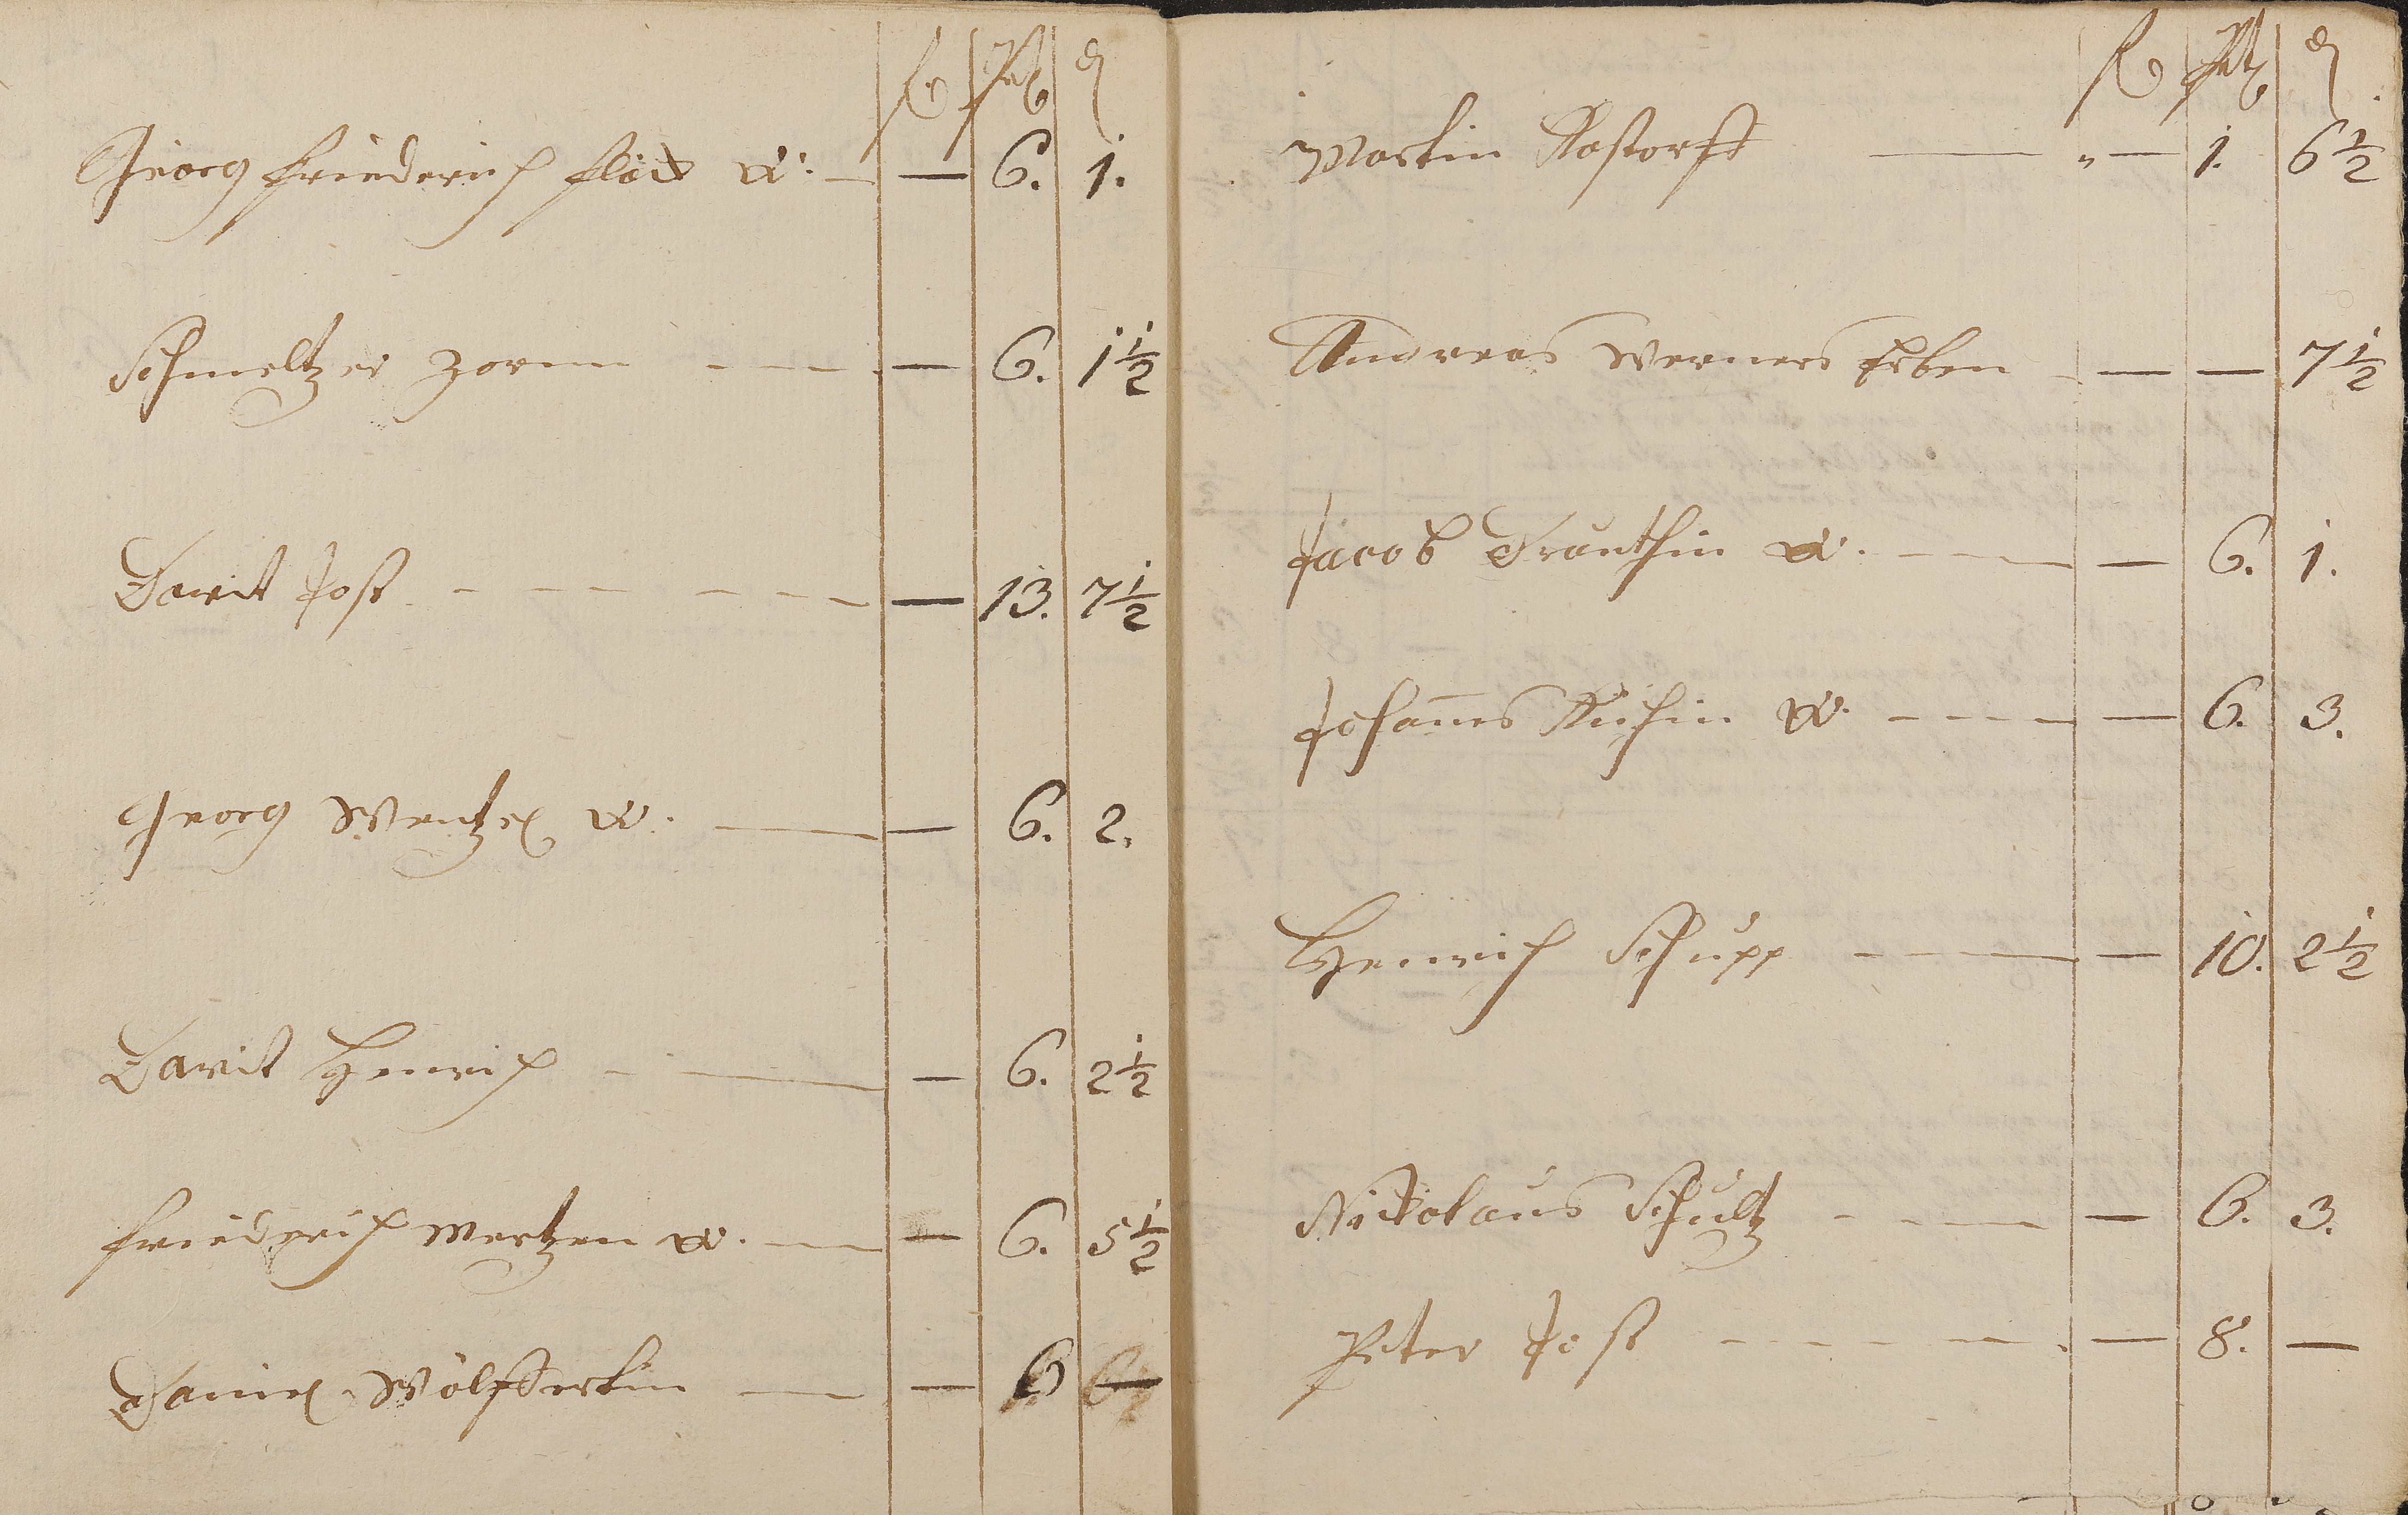 fl btz ₰
Georg Friederich W. — — 6. 1.
Schmeltzer Zornn — — — 6. 1½
Davit Jost — — — — 13. 7½
Georg Wentzel W. — — 6. 2.
Davit Henrich — — — 6. 2½
Friederich Mertzen W. — — 6. 5½
Daniel Wölfferlin — — 6 —
fl btz ₰
Martin Rastorff — " — 1. 6½
Andreas Werners Erben — — — 7½
Jacob Trauthin W. — — 6. 1.
Johannes W. — — 6. 3.
Henrich Schupp — — — 10. 2½
Nickolaus Schultz — — — 6. 3.
Peter Jost — — — 8. —